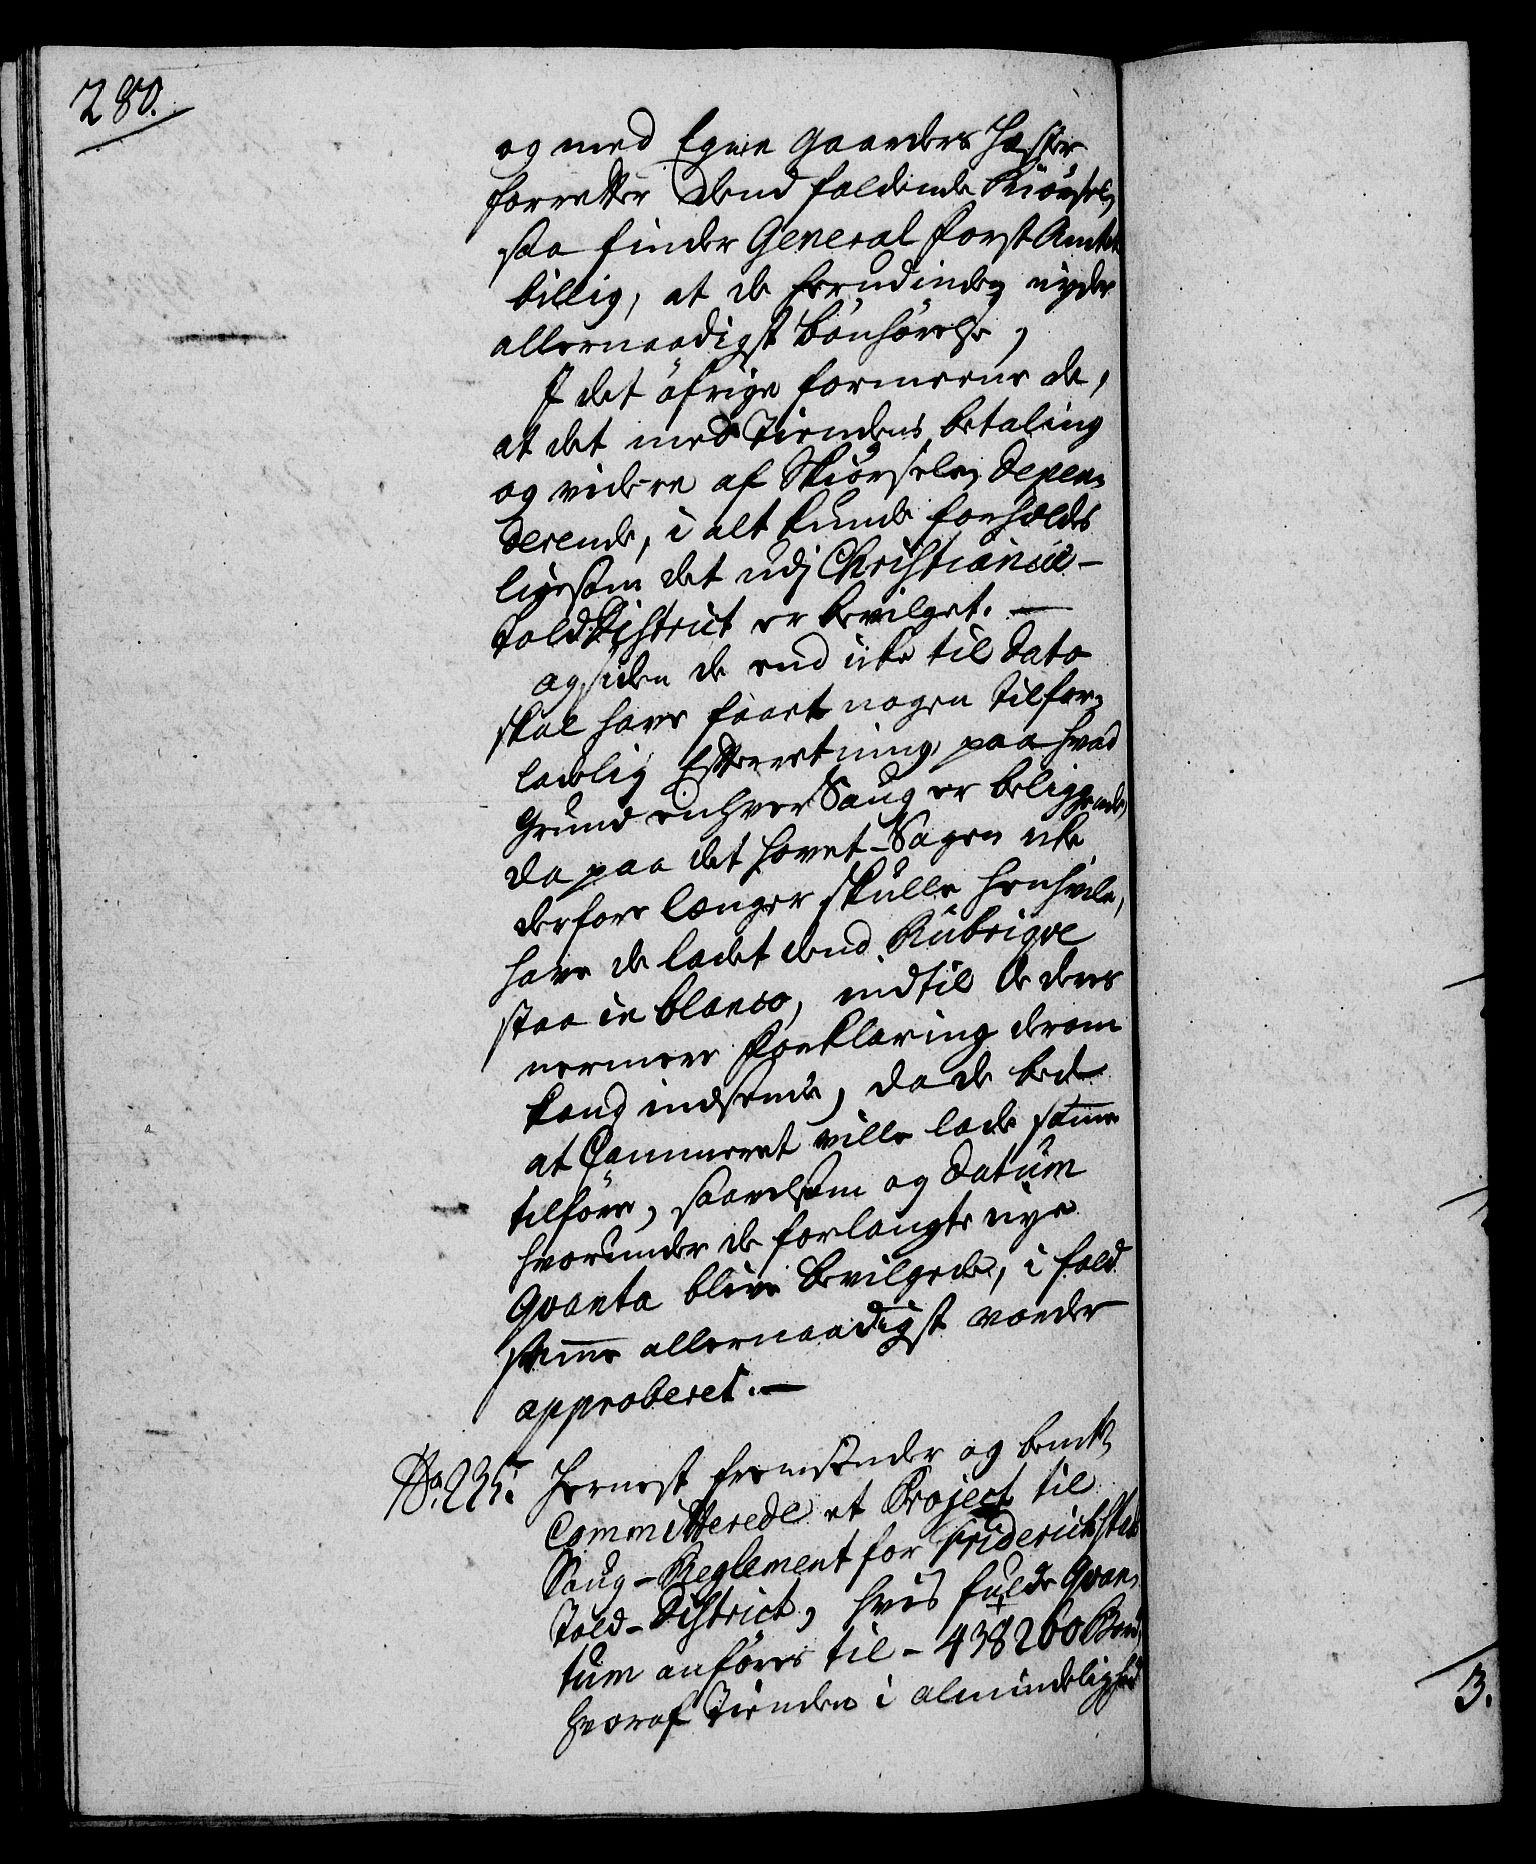 280.
og med Egne Gaarders Hæster
forretter dend faldende Kiørsel,
saa finder General Forst Amtet
billig, at de herudindeg nyder
allernaadigst bønhørelse,
I det öfrige formeene de,
at det med Tiendens betaling
og videre af Skiørselen depen-
derende, i alt kunde forholdes
ligesom det udj Christianiæ-
told District er bevilget. —
og siden de end ikke til dato
skal have faaet nogen tilfor-
ladelig Efterretning, paa hvad
Grund enhver Saug er beliggende,
da paa det hovet-Sagen ikke
derfore længer skulle henhvile,
have de ladet dend Rubrique
staa in blanco, indtil de deres
nermere Forklaring derom
kand indsende, da de bede
at Cammeret ville lade samme
tilföre, saavelsom og Datum
hvorunder de forlangte nye
Qvanta blive bevilgede, i fald
samme allernaadigst vorder
approberet. —
No. 235. Hernest fremsender og bemte
Committerede et Project til
Saug-Reglement for Friderichstads
Told-District, hvis fulde Qvan-
tum anföres til - 438260 Bord
hvoraf Tienden i almindelighed
3.